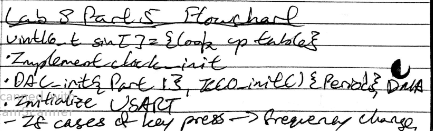 Lab 8 Part 5 Flowchart
uint16_t sin[] = {look up table}
• Implement clock_init
• DAC_init{Part 1}, TCC0_init(){Period}, DMA
• Initialize USART
- If cases of key press -> frequency change,